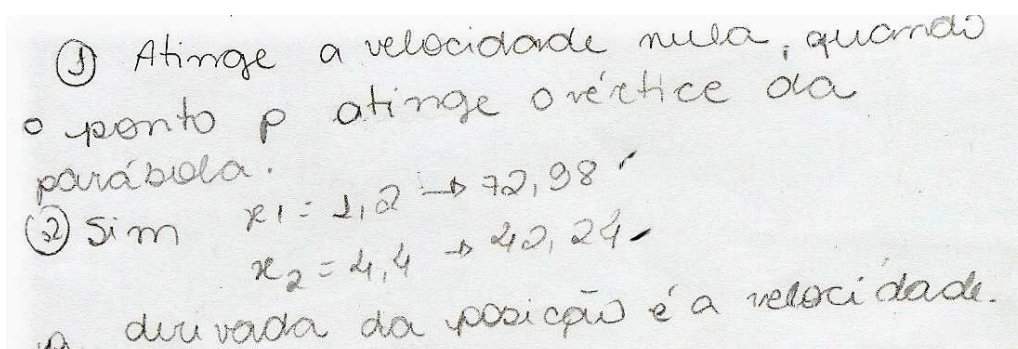 ① Atinge a velocidade nula, quando
o ponto p atinge o vértice da
parábola.
② Sim x1 = 1,2 → 72,98
x2 = 4,4 → 42,24
derivada da posição é a velocidade.